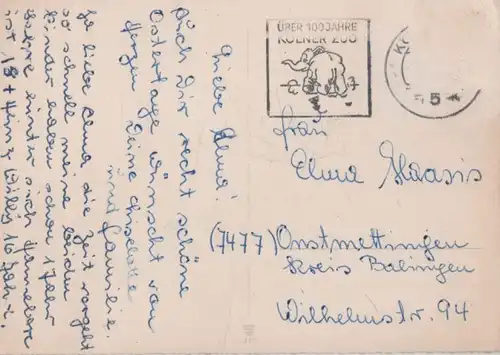 Liebe Elma!
Auch Dir recht schöne
Ostertage wünscht von
Herzen Deine Liselotte
und Familie.
Ja liebe Elma die Zeit vergeht
so schnell meine beiden
Kinder haben schon 1 Jahr
Lehre hinter sich Hannelore
ist 18 + Heinz Willy 16 Jahre.
ÜBER 100 JAHRE
KOELNER ZOO
5
Frau
Elma Haasis
(7477) Onstmettingen
Kreis Balingen
Wilhelmstr. 94